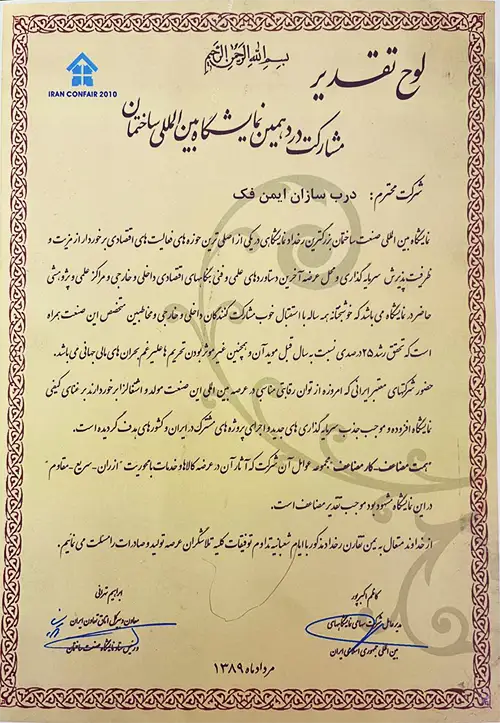 بسم الله الرحمن الرحیم
لوح تقدیر
IRAN CONFAIR 2010
مشارکت در دهمین نمایشگاه بین المللی ساختمان
شرکت محترم: درب سازان ایمن فک
نمایشگاه بین المللی صنعت ساختمان بزرگترین رخداد نمایشگاهی در یکی از اصلی ترین حوزه های فعالیت های اقتصادی برخوردار از مزیت و
ظرفیت پذیرش سرمایه گذاری و محل عرضه آخرین دستاوردهای علمی و فنی بنگاههای اقتصادی داخلی و خارجی و مراکز علمی و پژوهشی
حاضر در نمایشگاه می باشد که خوشبختانه همه ساله با استقبال خوب مشارکت کنندگان داخلی و خارجی و مخاطبین متخصص این صنعت همراه
است که تحقق رشد ۲۵ درصدی نسبت به سال قبل موید آن و همچنین غیر موثر بودن تحریم ها علیرغم بحران های مالی جهانی می باشد.
حضور شرکتهای معتبر ایرانی که امروزه از توان رقابتی مناسبی در عرصه بین المللی این صنعت مولد و اشتغالزا برخوردارند بر غنای کیفی
نمایشگاه افزوده و موجب جذب سرمایه گذاری های جدید و اجرای پروژه های مشترک در ایران و کشورهای هدف گردیده است.
"همت مضاعف - کار مضاعف" مجموعه عوامل آن شرکت که آثار آن در عرضه کالاها و خدمات با محوریت "ارزان - سریع - مقاوم"
در این نمایشگاه مشهود بود موجب تقدیر مضاعف است.
از خداوند متعال به یمن تقارن رخداد مذکور با ایام شعبانیه تداوم توفیقات کلیه تلاشگران عرصه تولید و صادرات را مسئلت می نمائیم.
کاظم اکبرپور
مدیرعامل شرکت سهامی نمایشگاههای
بین المللی جمهوری اسلامی ایران
ابراهیم تهرانی
معاون دبیرکل اتاق تعاون ایران
و رئیس ستاد نمایشگاه صنعت ساختمان
مرداد ماه ۱۳۸۹